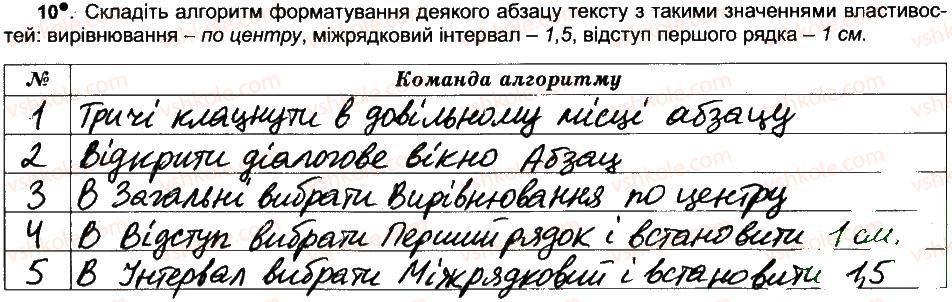 10•. Складіть алгоритм форматування деякого абзацу тексту з такими значеннями властивос-
тей: вирівнювання – по центру, міжрядковий інтервал – 1,5, відступ першого рядка – 1 см.
№ Команда алгоритму
1 Тричі клацнути в довільному місці абзацу
2 Відкрити діалогове вікно Абзац
3 В Загальні вибрати Вирівнювання по центру
4 В Відступ вибрати Перший рядок і встановити 1 см.
5 В Інтервал вибрати Міжрядковий і встановити 1,5